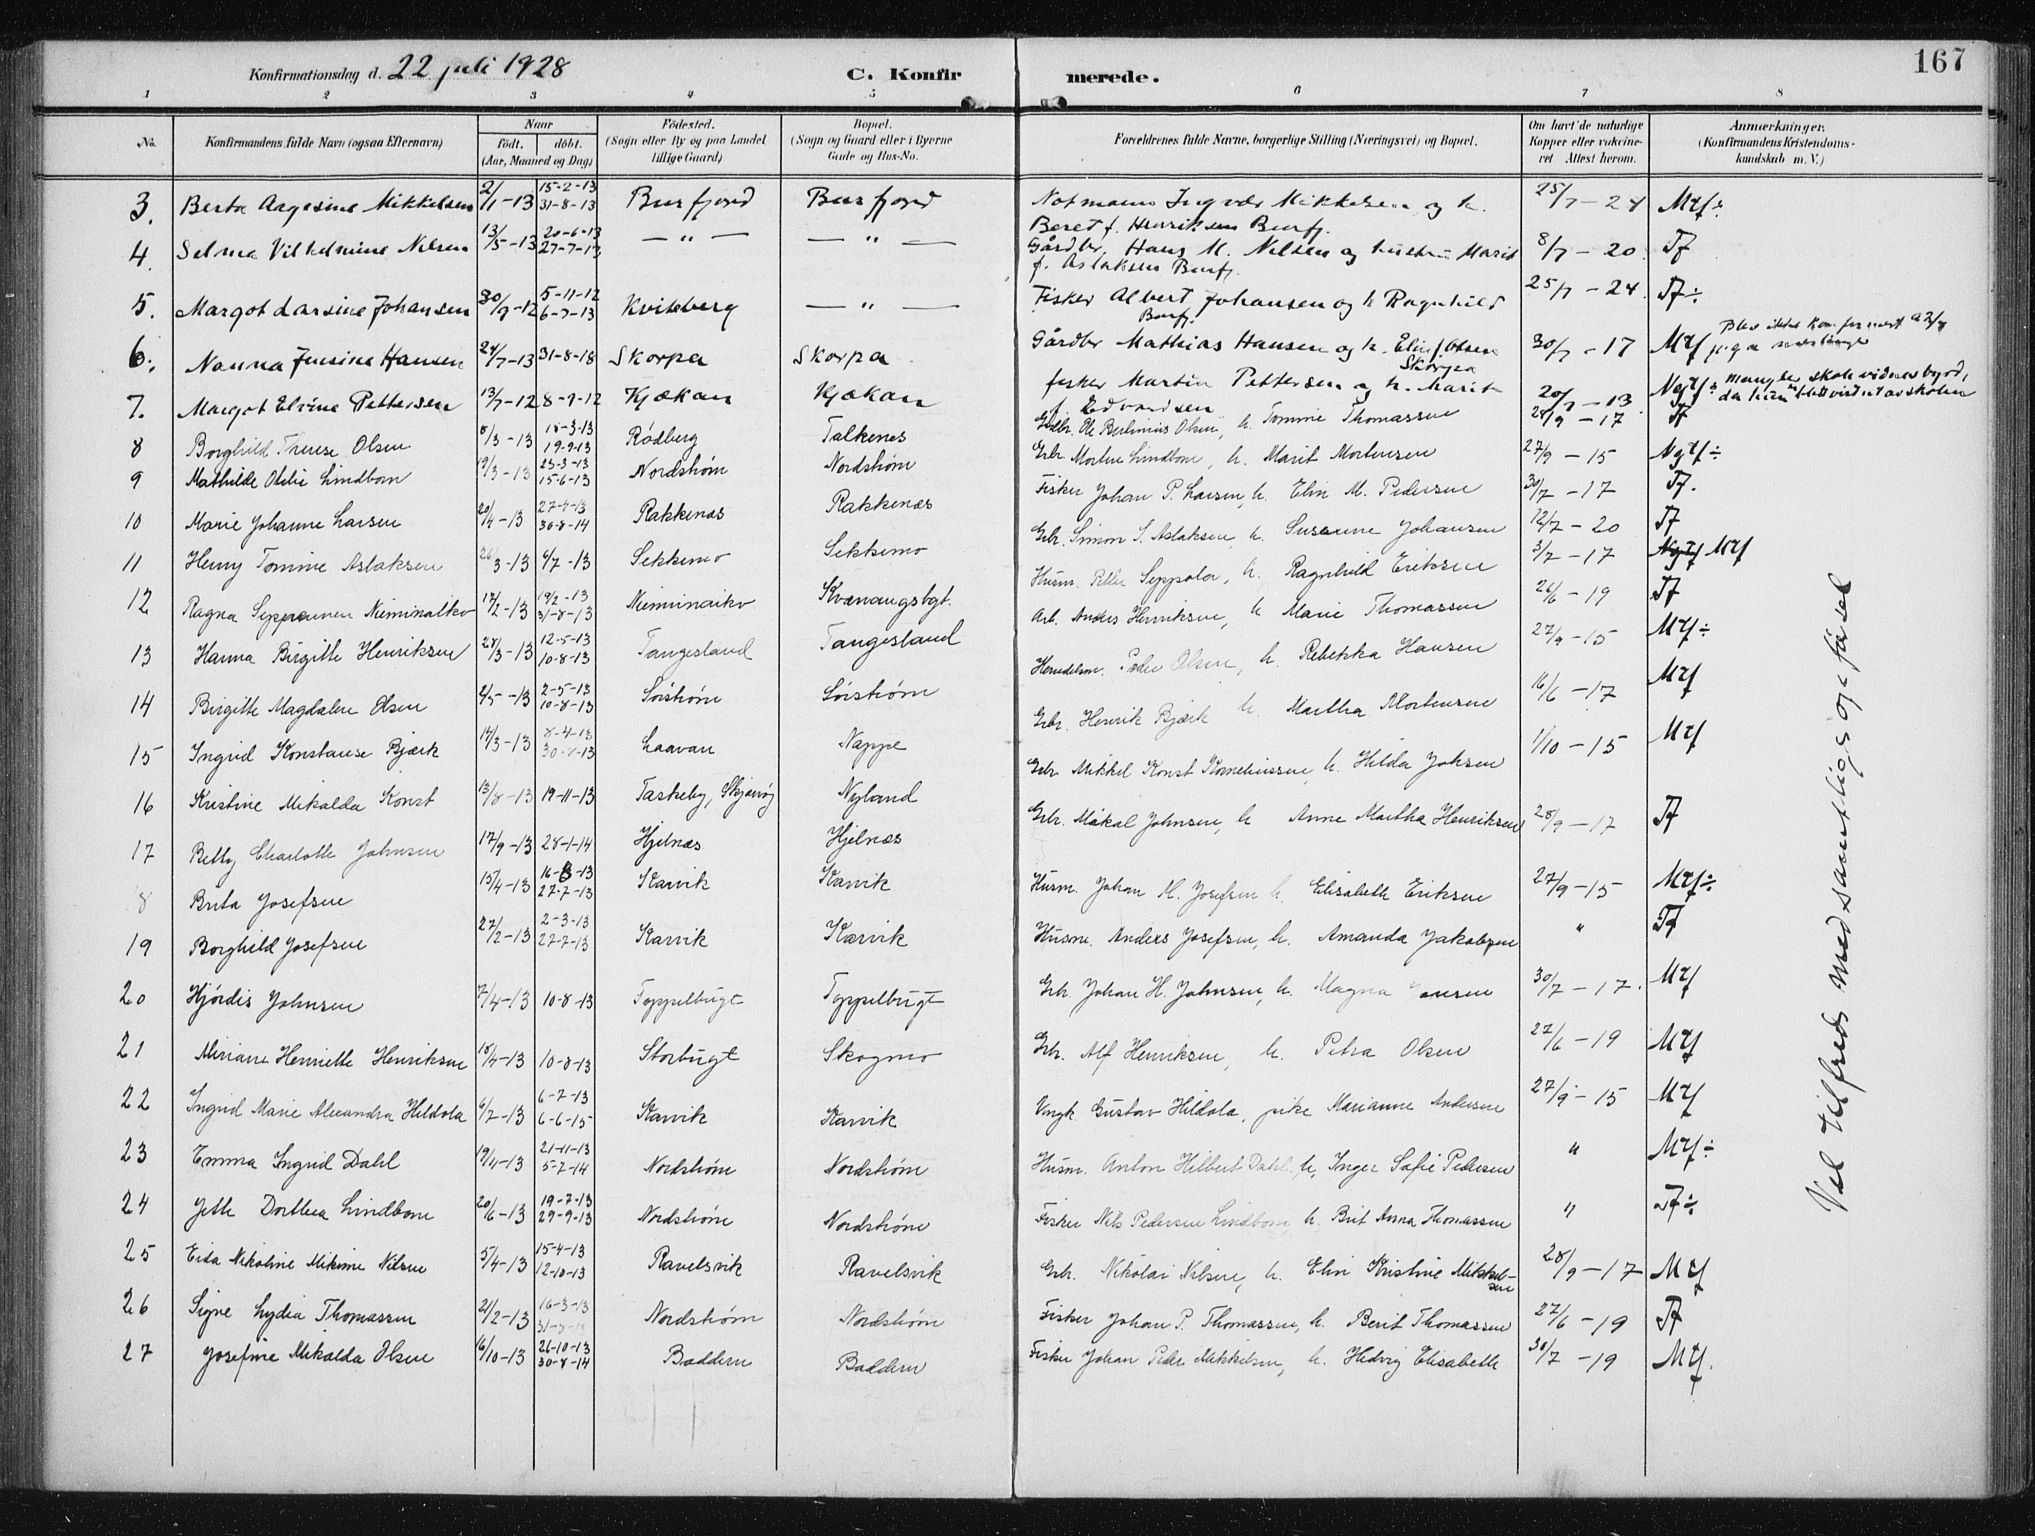 167
Konfirmationsdag d. 22 juli 1928 C. Konfirmerede.
1 2 3 4 5 6 7 8
No. Konfirmandens fulde Navn (ogsaa Efternavn) Naar födt. döbt. (Aar, Maaned og Dag) Födested. (Sogn eller By og paa Landet tillige Gaard) Bopæl. (Sogn og Gaard eller i Byerne Gade og Hus-No. Forældrenes fulde Navne, borgerlige Stilling (Næringsvei) og Bopæl. Om havt de naturlige Kopper eller vakcineret Attest herom. Anmærkninger. (Konfirmandens Kristendomskundskab m. V.)
3. Berta Aagesine Mikkelsen 2/1-13 15-2-13 31-8-13 Burfjord Burfjord Notmann Ingvær Mikkelsen og h. Beret f. Henriksen Burfj. 25/7-24 Mrf÷
4. Selma Vilhelmine Nilsen 13/5-13 20-6-13 27-7-13 — " — — " — Gårdbr. Hans M. Nilsen og hustru Marit f. Aslaksen Burfj. 8/7-20 Tf
5. Margot Larsine Johansen 30/9-12 5-11-12 6-7-13 Kviteberg — " — Fisker Albert Johansen og h Ragnhild Burfj. 25/7-24 Tf÷
6. Nanna Jensine Hansen 24/7-13 31-8-18 Skorpa Skorpa Gårdbr Mathias Hansen og h. Elin f. Olsen Skorpa 30/7-17 Mrf Blev ikke konfirmert
7. Margot Elvine Pettersen 13/7-12 8-9-12 Kjækan Kjækan fisker Martin Pettersen og h. Marit f. Edvardsen 20/7-13 Ngtf÷ mangler skolevidnesbyrd,
8 Borghild Therese Olsen 8/3-13 18-3-13 19-9-13 Rødberg Talkenes Gdbr. Ole Berlinius Olsen, h. Tomine Thomassen 28/9-17 Tf
9 Mathilde Otelie Lindbom 19/3-13 23-3-13 15-6-13 Nordstrøm Nordstrøm Gbr Morten Lindbom, h. Marit Mortensen 27/9-15 Ngtf÷
10 Marie Johanne Larsen 20/4-13 27-4-13 30-8-14 Rakkenæs Rakkenæs Fisker Johan P. Larsen, h. Elin M. Pedersen 30/7-17 Tf.
11 Henny Tomine Aslaksen 26/3-13 6/7-13 Sekkemo Sekkemo Gbr. Simon S. Aslaksen, h. Susanne Johansen 12/7-20 Tf
12 Ragna Seppænen Nieminaiko 17/2-13 19/2-13 31-8-13 Nieminaiko Kvænangsbgt. Husm. Petter Seppala, h. Ragnhild Eriksen 3/7-17 Ngtf Mrf
13 Hanna Birgitte Henriksen 28/3-13 12-5-13 10-8-13 Tangesland Tangesland Arb. Anders Henriksen, h Marie Thomassen 26/6-19 Tf
14 Birgitte Magdalene Olsen 2/5-13 2-5-13 10-8-13 Sørstrøm Sørstrøm Peder Olsen, h. Rebekka Hansen 27/9-15 Mrf÷
15 Ingrid Konstanse Bjærk 14/3-13 8-4-13 Laavan Nappe Gbr. Henrik Bjærk h. Martha Mortensen 16/6-17 Mrf
16 Kristine Mikalda Konst 13/8-13 19-11-13 Taskeby, Skjervøy Nyland Gbr Mikkel Konst Kornelinssen, h. Hilda Johsen 1/10-15 Mrf
17 Betty Charlotte Johnsen 17/9-13 28-1-14 Hjelnæs Hjelnæs Gbr. Mikal Johnsen, h Anne Martha Henriksen 28/9-17 Tf
8 Brita Josefsen 15/4-13 16-6-13 27-7-13 Karvik Karvik Husm. Johan M. Josefsen h. Elisabeth Eriksen 27/9-15 Mrf÷
19 Borghild Josefsen 27/2-13 2-3-13 27-7-13 Karvik Karvik Husm. Anders Josefsen, h. Amanda Jakobsen " Tf
20 Hjørdis Johnsen 7/4-13 10-8-13 Toppelbugt Toppelbugt Gbr Johan H. Johnsen, h. Magna Jensen 30/7-17. Mrf
21 Miriane Henriette Henriksen 18/4-13 10-8-13 Storbugt Skogmo Gbr. Alf Henriksen, h. Petra Olsen 27/6-19 Mrf
22 Ingrid Marie Alexandra Hildola 6/2-13 6-7-13 6-6-15 Karvik Karvik Ungk. Gustav Hildola, pike Marianne Andersen 27/9-15 Mrf
23 Emma Ingrid Dahl 19/11-13 21-11-13 5-7-14 Nordstrøm Nordstrøm Husm. Anton Hilbert Dahl, h. Inger Sofie Pedersen " Mrf÷
24 Jette Dorthea Lindbom 20/6-13 19-7-13 29-9-13 Nordstrøm Nordstrøm Fisker Nils Pedersen Lindbom h. Brit Anna Thomassen " Tf÷
25 Eida Nikoline Mikime Nilsen 5/4-13 15-4-13 12-10-13 Ravelsvik Ravelsvik Gbr. Nikolai Nilsen, h. Elin Kristine Mikkelsen 28/9-17 Mrf
26 Signe Lydia Thomassen 21/2-13 16-3-13 Nordstrøm Nordstrøm Fisker Johan P. Thomassen, h. Berit Thomassen 27/6-19 Tf
27 Josefine Mikalda Olsen 16/10-13 26-10-13 30-8-14 Baddern Baddern Fisker Johan Peder Mikkelsen, h. Hedvig Elisabeth 30/7-19 Mrf.
Vel tilfreds med samtlige opførsel